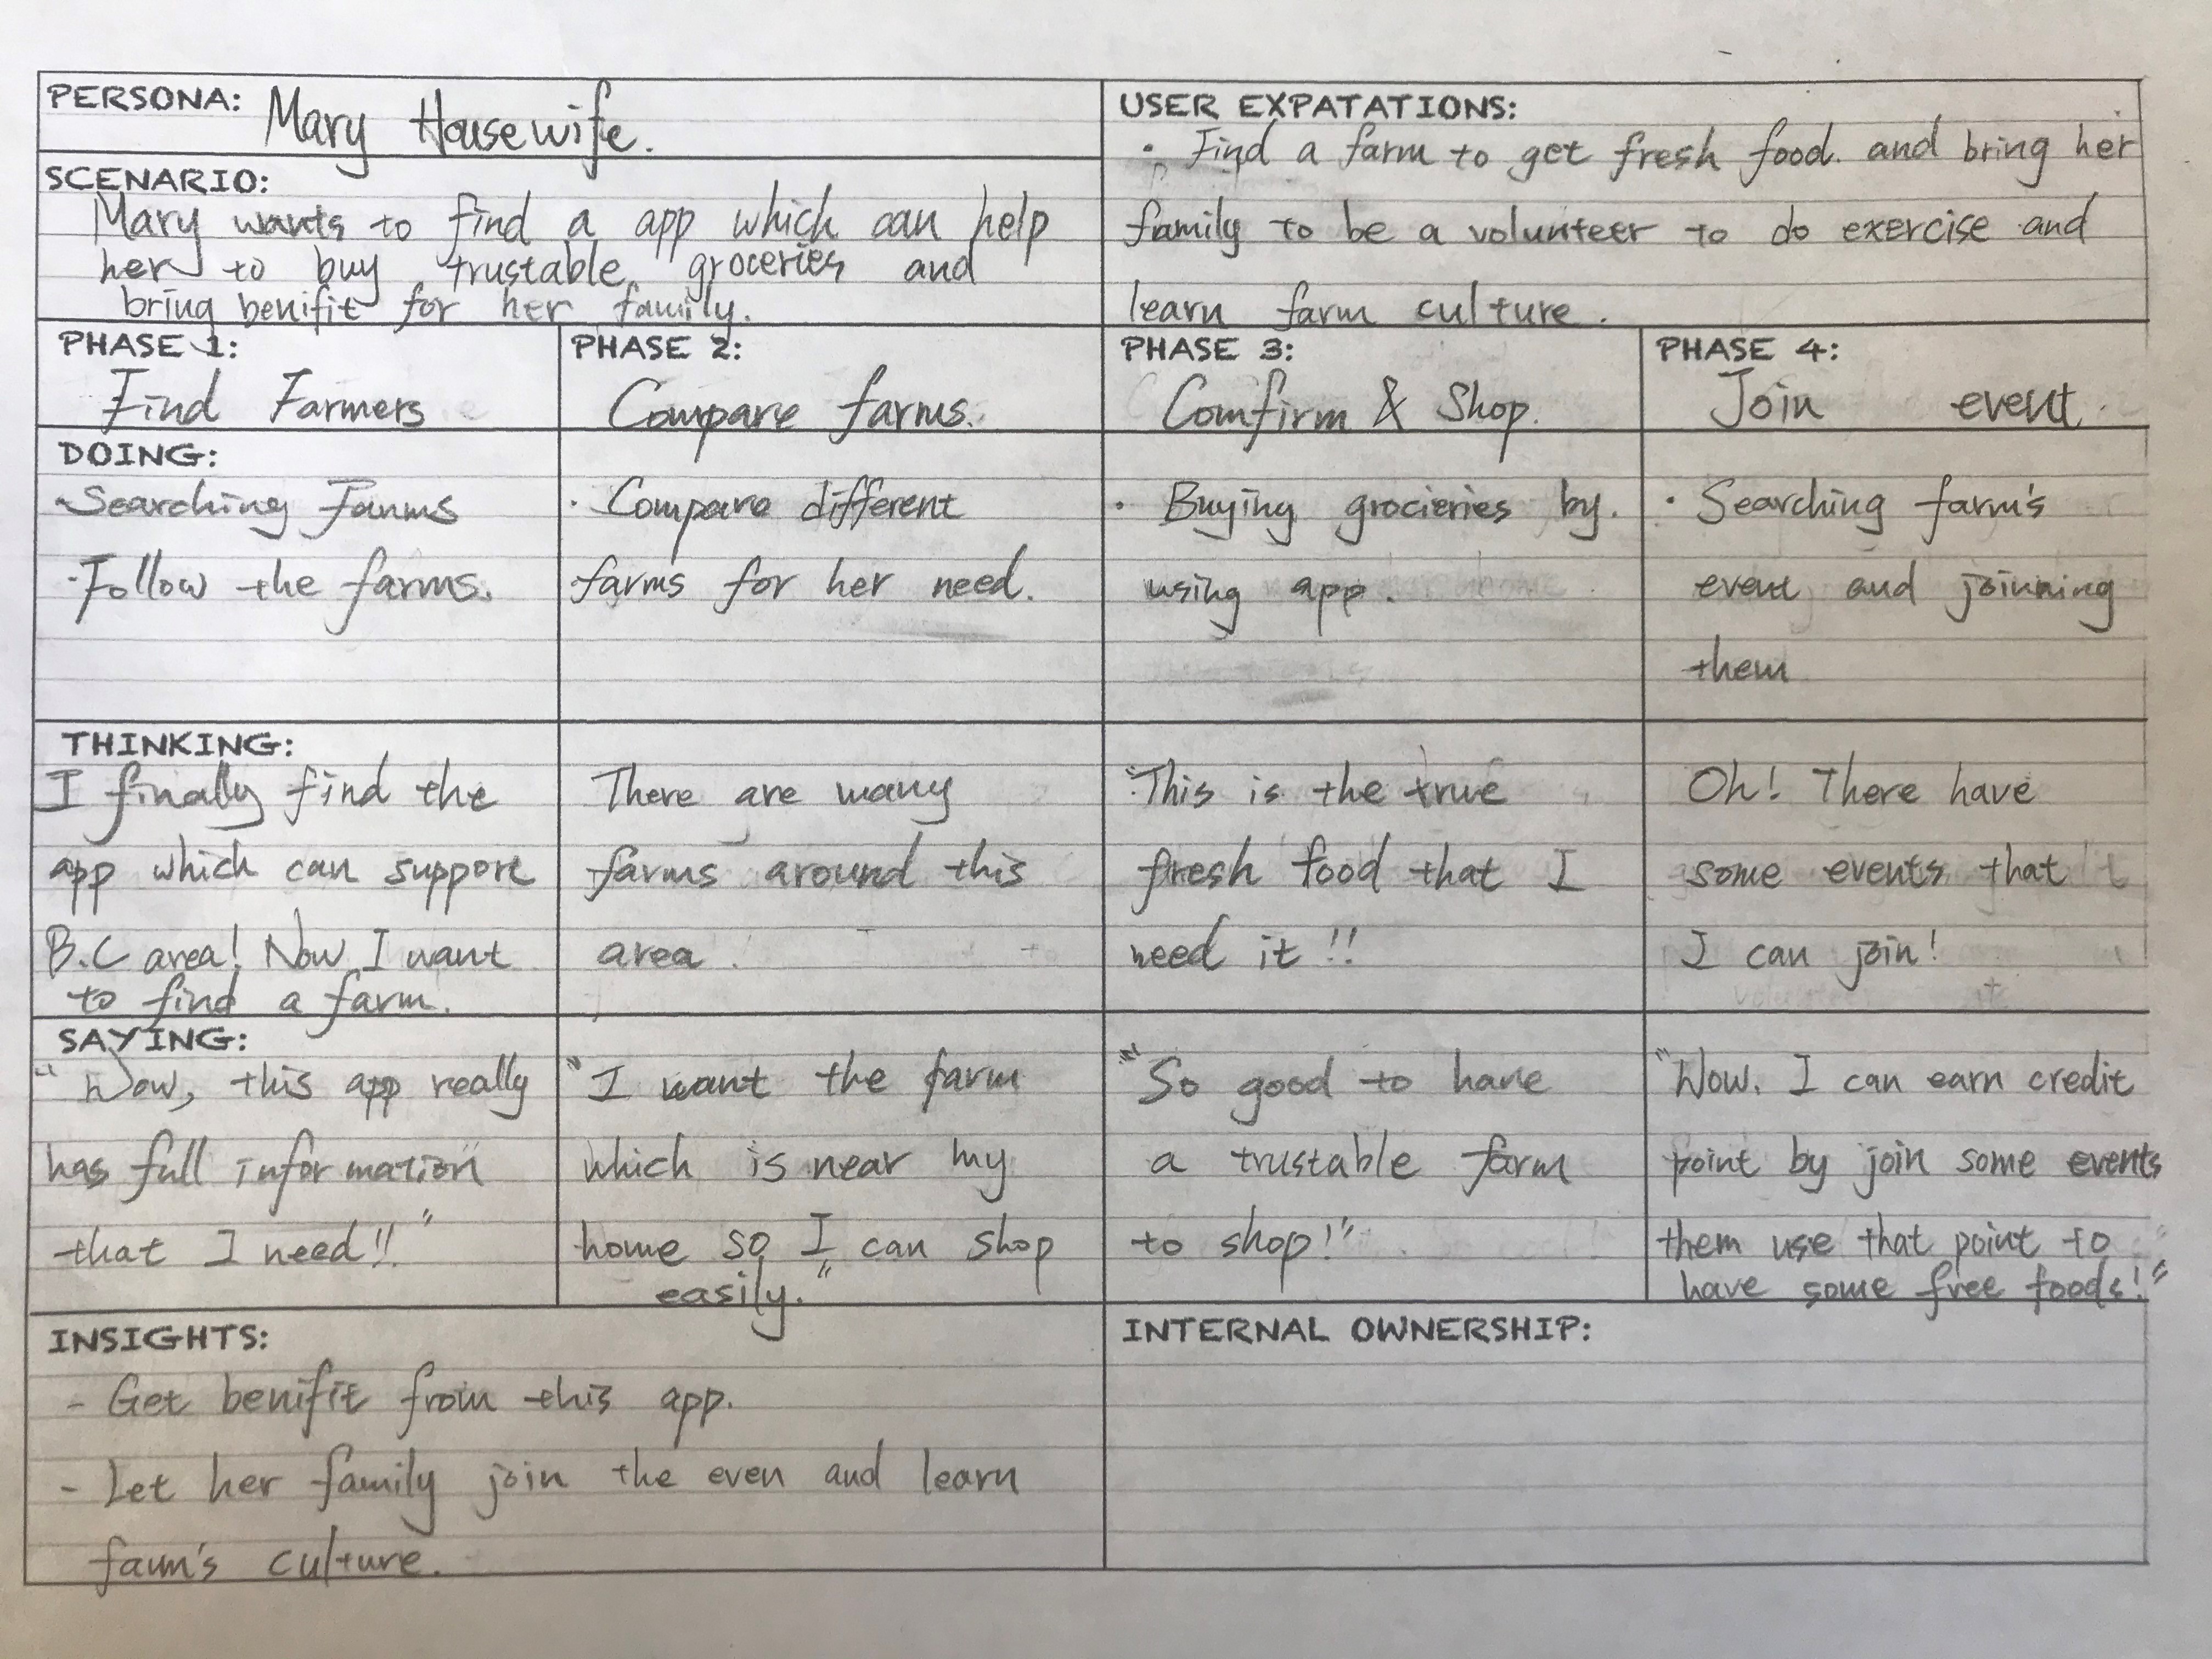 PERSONA: Mary Housewife.
SCENARIO:
Mary wants to find a app which can help
her to buy trustable groceries and
bring benifit for her family.
USER EXPATATIONS:
· Find a farm to get fresh food. and bring her
family to be a volunteer to do exercise and
learn farm culture.
PHASE 1:
Find Farmers
PHASE 2:
Compare farms.
PHASE 3:
Comfirm & Shop.
PHASE 4:
Join event.
DOING:
· Searching Farms
· Follow the farms.
· Compare different
farms for her need.
· Buying grocieries by.
using app.
· Searching farm's
event and joinning
them
THINKING:
I finally find the
app which can support
B.C area! Now I want
to find a farm.
There are many
farms around this
area.
"This is the true
fresh food that I
need it!!
Oh! There have
some events that
I can join!
SAYING:
"Wow, this app really
has full information
that I need!!"
"I want the farm
which is near my
home so I can shop
easily."
"So good to have
a trustable farm
to shop!"
"Wow. I can earn credit
point by join some events
them use that point to
have some free foods!"
INSIGHTS:
- Get benifit from this app.
- Let her family join the even and learn
farm's culture.
INTERNAL OWNERSHIP: